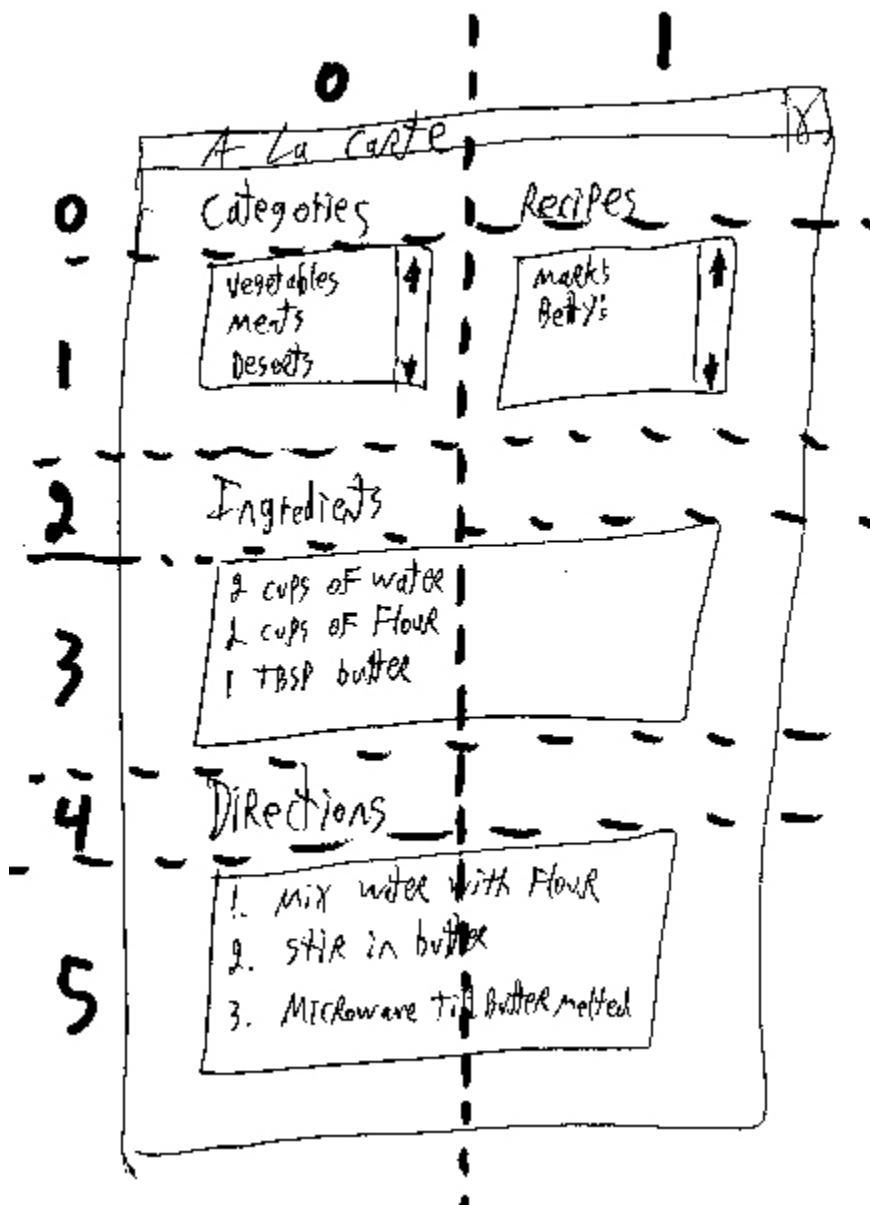 0 1
A La Carte X
0 Categories Recipes
1
Vegetables Mark's
Meats Betty's
Deserts
2 Ingredients
3
2 cups of water
2 cups of Flour
1 TBSP butter
4 Directions
5
1. Mix water with Flour
2. Stir in butter
3. Microwave till Butter melted